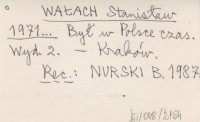 WAŁACH Stanisław
1971... Był w Polsce czas.
Wyd. 2. – Kraków.
Rec.: NURSKI B. 1987